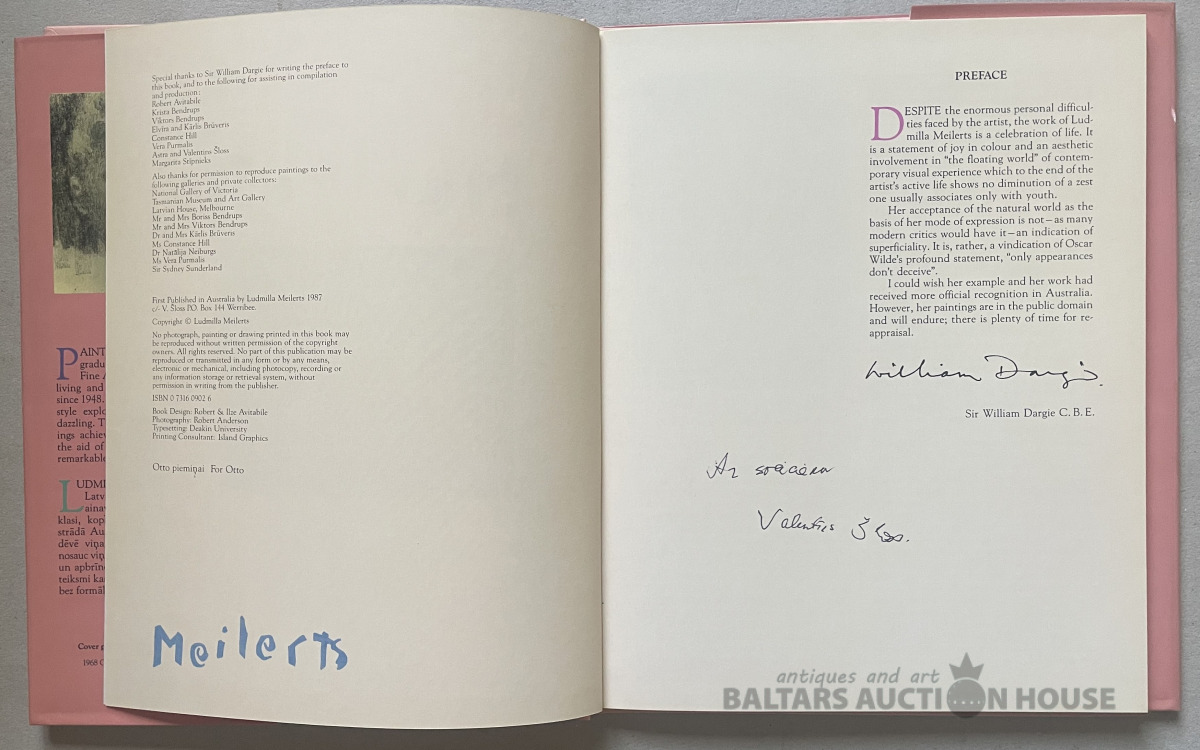 PAINT
gradu
Fine A
living and
since 1948.
style explo
dazzling. T
ings achiev
the aid of
remarkable
LUDMI
Latv
aina
klasi, kop
strādā Au
dēvē viņa
nosauc viņ
un apbrīn
teiksmi ka
bez formāl
Cover
1968 C
Special thanks to Sir William Dargie for writing the preface to
this book, and to the following for assisting in compilation
and production:
Robert Avitabile
Krista Bendrups
Viktors Bendrups
Elvira and Kārlis Brūveris
Constance Hill
Vera Purmalis
Astra and Valentins Šloss
Margarita Stipnieks
Also thanks for permission to reproduce paintings to the
following galleries and private collectors:
National Gallery of Victoria
Tasmanian Museum and Art Gallery
Latvian House, Melbourne
Mr and Mrs Boriss Bendrups
Mr and Mrs Viktors Bendrups
Dr and Mrs Kārlis Brūveris
Ms Constance Hill
Dr Natālija Neiburgs
Ms Vera Purmalis
Sir Sydney Sunderland
First Published in Australia by Ludmilla Meilerts 1987
c/- V. Šloss P.O. Box 144 Werribee.
Copyright © Ludmilla Meilerts
No photograph, painting or drawing printed in this book may
be reproduced without written permission of the copyright
owners. All rights reserved. No part of this publication may be
reproduced or transmitted in any form or by any means,
electronic or mechanical, including photocopy, recording or
any information storage or retrieval system, without
permission in writing from the publisher.
ISBN 0 7316 0902 6
Book Design: Robert & Ilze Avitabile
Photography: Robert Anderson
Typesetting: Deakin University
Printing Consultant: Island Graphics
Otto piemiņai For Otto
Meilerts
PREFACE
DESPITE the enormous personal difficul-
ties faced by the artist, the work of Lud-
milla Meilerts is a celebration of life. It
is a statement of joy in colour and an aesthetic
involvement in "the floating world" of contem-
porary visual experience which to the end of the
artist's active life shows no diminution of a zest
one usually associates only with youth.
Her acceptance of the natural world as the
basis of her mode of expression is not—as many
modern critics would have it—an indication of
superficiality. It is, rather, a vindication of Oscar
Wilde's profound statement, "only appearances
don't deceive".
I could wish her example and her work had
received more official recognition in Australia.
However, her paintings are in the public domain
and will endure; there is plenty of time for re-
appraisal.
William Dargie.
Sir William Dargie C.B.E.
Ar
Valentins Šloss.
antiques and art
BALTARS AUCTION HOUSE